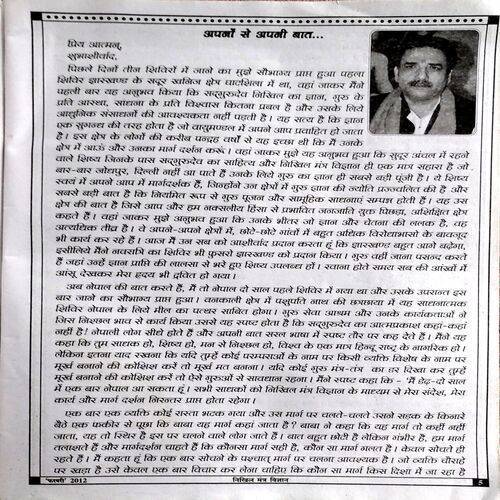 अपनों से अपनी बात...
प्रिय आत्मन्,
शुभाशीर्वाद,
पिछले दिनों तीन शिविरों में जाने का मुझे सौभाग्य प्राप्त हुआ पहला
शिविर झारखण्ड के सदूर खनिज क्षेत्र घाटशिला में था, वहां जाकर मैंने
पहली बार यह अनुभव किया कि सद्गुरुदेव निखिल का ज्ञान, गुरु के
प्रति आस्था, साधना के प्रति विश्वास कितना प्रबल है और उसके लिये
आधुनिक संसाधनों की आवश्यकता नहीं पड़ती है। यह सत्य है कि ज्ञान
एक सुगन्ध की तरह होता है जो वायुमण्डल में अपने आप प्रवाहित हो जाता
है। इस क्षेत्र के लोगों की करीब पन्द्रह वर्षों से यह इच्छा थी कि मैं उनके
क्षेत्र में आऊं और उनका मार्ग दर्शन करूं। वहां जाकर मुझे यह अनुभव हुआ कि सुदूर अंचल में रहने
वाले शिष्य जिनके पास सद्गुरुदेव का साहित्य और निखिल मंत्र विज्ञान ही एक मात्र सहारा है जो
बार-बार जोधपुर, दिल्ली नहीं आ पाते हैं उनके लिये गुरु का ज्ञान ही सबसे बड़ी पूंजी है। ये शिष्य
स्वयं में अपने आप में मार्गदर्शक हैं, जिन्होंने उन क्षेत्रों में गुरु ज्ञान की ज्योति प्रज्ज्वलित की है और
सबसे बड़ी बात है कि नियमित रूप से गुरु पूजन और सामूहिक साधनाएं सम्पन्न होती हैं। यह उस
क्षेत्र की बात है जिसे आप और हम नक्सलीय हिंसा से प्रभावित जनजाति युक्त पिछड़ा, अशिक्षित क्षेत्र
कहते हैं। वहां जाकर मुझे अनुभव हुआ कि उनके भीतर जो ज्ञान और चेतना की ललक है, वह
अत्यधिक तीव्र है। वे अपने-अपने क्षेत्रों में, छोटे-छोटे गांवों में बहुत अधिक विरोधाभासों के बावजूद
भी कार्य कर रहे हैं। आज मैं उन सब को आशीर्वाद प्रदान करता हूं कि झारखण्ड बहुत आगे बढ़ेगा,
इसीलिये मैंने नवरात्रि का शिविर भी फुसरो झारखण्ड को प्रदान किया। गुरु वहीं जाना पसन्द करते
हैं जहां उन्हें ज्ञान प्राप्ति की लालसा से भरे हुए शिष्य उपलब्ध हों। रवाना होते समय सब की आंखों में
आंसू देखकर मेरा हृदय भी द्रवित हो गया।
अब नेपाल की बात करते हैं, मैं तो नेपाल दो साल पहले शिविर में गया था और उसके उपरान्त इस
बार जाने का सौभाग्य प्राप्त हुआ। वनकाली क्षेत्र में पशुपति नाथ की छत्रछाया में यह साधनात्मक
शिविर नेपाल के लिये मील का पत्थर साबित होगा। गुरु सेवा आश्रम और उनके कार्यकर्ताओं ने
जिस निश्छल भाव से कार्य किया उससे यह स्पष्ट होता है कि सद्गुरुदेव का आत्मप्रकाश कहां-कहां
नहीं है! नेपाली लोग सीधे होते हैं और अपनी बात सरल भाषा में स्पष्ट रूप से कह देते हैं। मैंने यह
कहा कि तुम साधक हो, शिष्य हो, मन से निश्छल हो, विश्व के एक मात्र हिन्दू राष्ट्र के नागरिक हो।
लेकिन इतना याद रखना कि यदि तुम्हें कोई परम्पराओं के नाम पर किसी व्यक्ति विशेष के नाम पर
मूर्ख बनाने की कोशिश करें तो मूर्ख मत बनना। यदि कोई गुरु मंत्र-तंत्र का डर दिखा कर तुम्हें
मूर्ख बनाने की कोशिश करें तो ऐसे गुरुओं से सावधान रहना। मैंने स्पष्ट कहा कि - 'मैं डेढ़-दो साल
में एक बार नेपाल आ सकता हूं। सभी साधकों को निखिल मंत्र विज्ञान के माध्यम से मेरा संदेश, मेरा
कार्य और मार्ग दर्शन निरन्तर प्राप्त होता रहेगा।
एक बार एक व्यक्ति कोई रास्ता भटक गया और उस मार्ग पर चलते-चलते उसने सड़क के किनारे
बैठे एक फकीर से पूछा कि बाबा यह मार्ग कहां जाता है? बाबा ने कहा कि यह मार्ग तो कहीं नहीं
जाता, यह तो स्थिर है इस पर चलने वाले लोग जाते हैं। बात बहुत छोटी है लेकिन गंभीर है, हम मार्ग
तलाशते हैं और मार्गदर्शन चाहते हैं कि कौनसा मार्ग सही है, कौन सा मार्ग गलत है। केवल सोचते ही
रहते हैं। मैं कहता हूं कि एक बार सोचने के पश्चात् मार्ग पर चलना आवश्यक है। जो व्यक्ति चौराहे
पर खड़ा है उसे केवल एक बार विचार कर लेना चाहिए कि कौन सा मार्ग किस दिशा में जा रहा है
'फरवरी' 2012
निखिल मंत्र विज्ञान
5